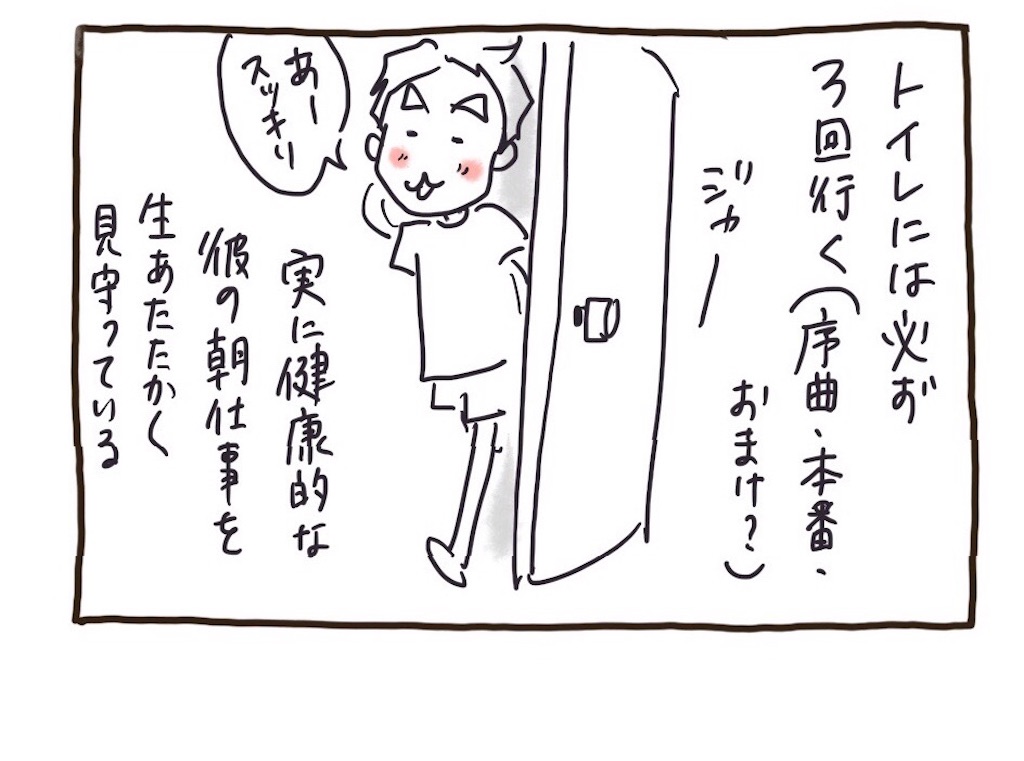 トイレには必ず
3回行く(序曲、本番、
おまけ?)
ジャー
あー
スッキリ
実に健康的な
彼の朝仕事を
生あたたかく
見守っている